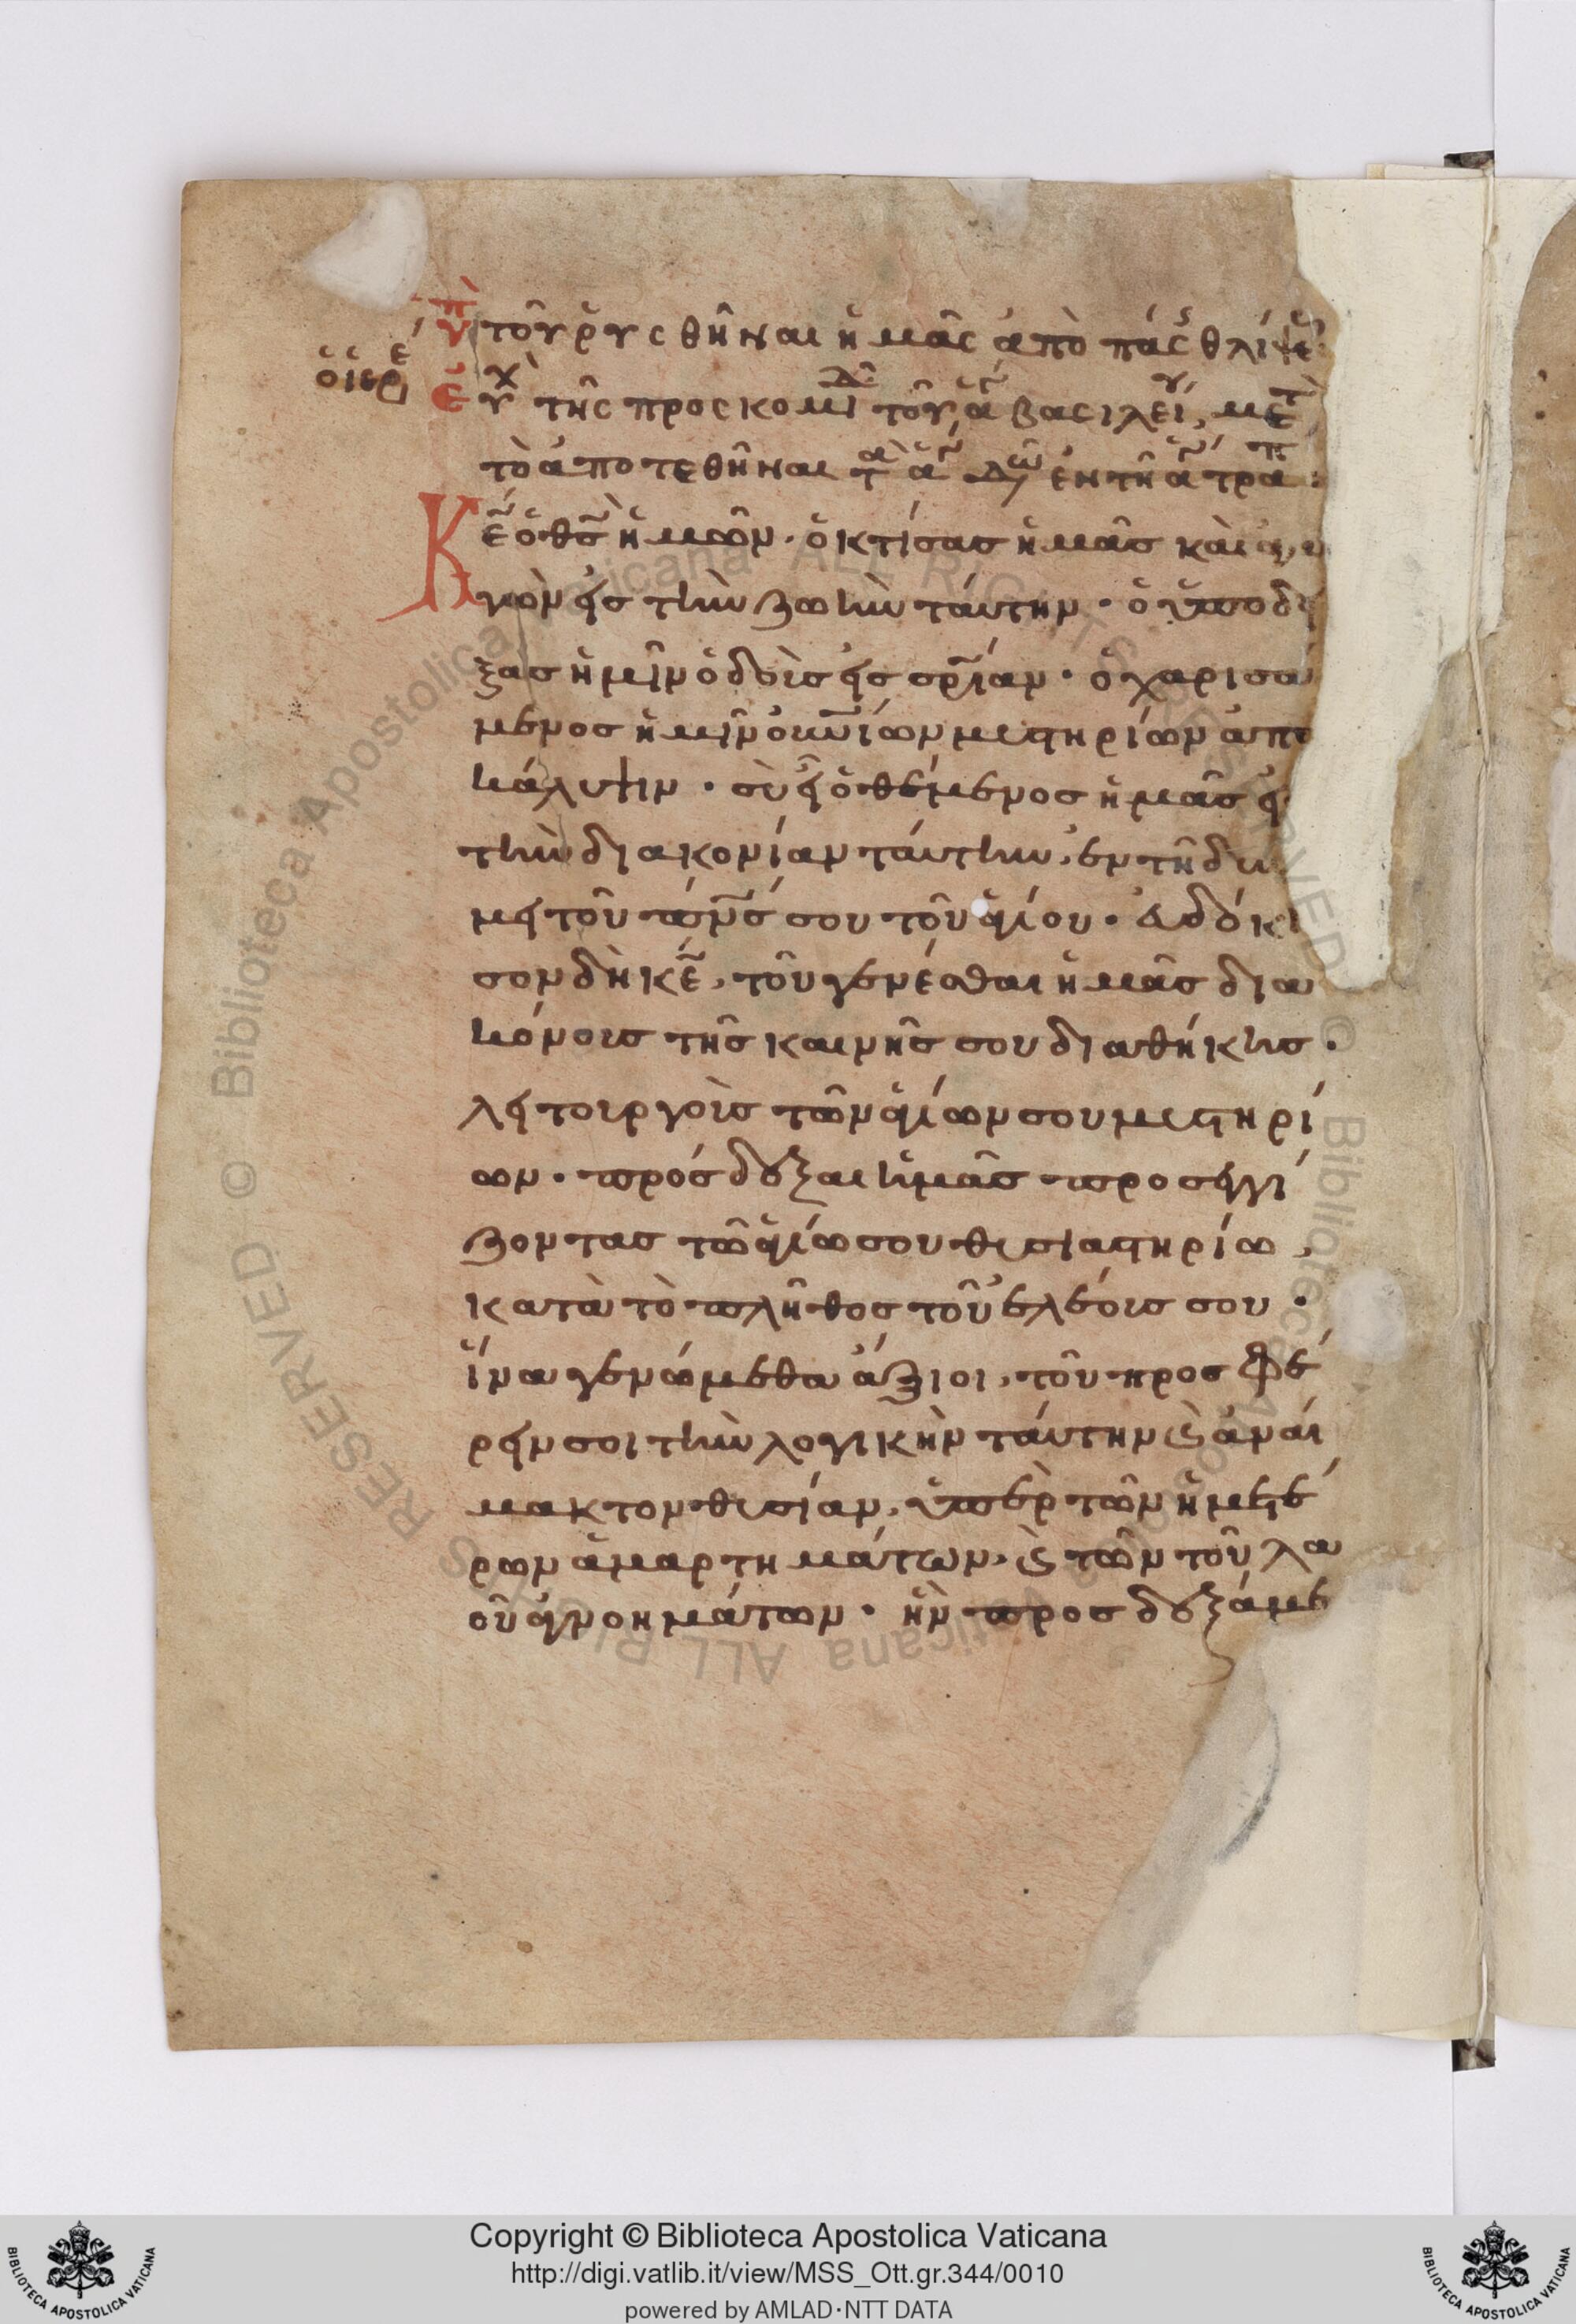 ὁ ἱερε
ὑπ τοῦ ρυσθῆναι ἡμᾶς ἀπὸ πάς θλίψε
εὐχ τῆς προσκομιδ τοῦ ἁ βασιλείου, μετ
τὸ ἀποτεθῆναι τὰ ἅ δῶ ἐν τῆ ἁ τραπ
Κε ὁ θς ἡμῶν· ὁ κτίσας ἡμᾶς καὶ ἀγα
γὼν εἰς τὴν ζωὴν ταύτην· ὁ ὑποδεί
ξας ἡμῖν ὁδοὺς εἰς σρίαν· ὁ χαρισά
μενος ἡμῖν οὐνίων μυστηρίων ἀπο
κάλυψιν· σὺ εἶ ὁ θέμενος ἡμᾶς εἰ
τὴν διακονίαν ταύτην, ἐν τῆ δυ
μει τοῦ πνς σου τοῦ ἁγίου· εὐδόκι
σον δὴ κε, τοῦ γενέσθαι ἡμᾶς δια
κόνους τῆς καινῆς σου διαθήκης·
λειτουργοὺς τῶν ἁγίων σου μυστηρί
ων· πρόσδεξαι ἡμᾶς προσεγγί
ζοντας τῶ ἁγίω σου θυσιαστηρίω,
κατὰ τὸ πλῆθος τοῦ ἐλέους σου·
ἵνα γενώμεθα ἄξιοι, τοῦ προσφέ
ρειν σοι τὴν λογικὴν ταύτην ϗ ἀναί
μακτον θυσίαν, ὑπὲρ τῶν ἡμετέ
ρων ἁμαρτημάτων, ϗ τῶν τοῦ λα
οῦ ἀγνοημάτων· ἣν προσδεξάμε
Copyright © Biblioteca Apostolica Vaticana
http://digi.vatlib.it/view/MSS_Ott.gr.344/0010
powered by AMLAD·NTT DATA